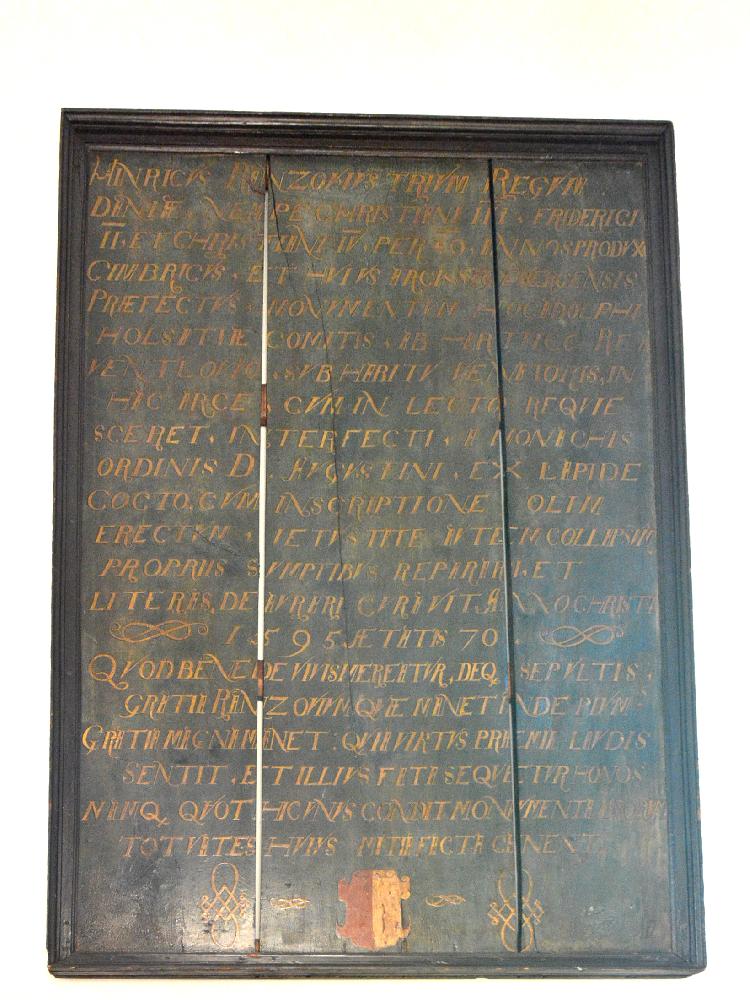 HINRICVS RANZOVIVS TRIVM REGVM
DANIÆ, NEMPE CHRISTIANI III, FRIDERICI
II. ET CHRISTIANI IV. PER 40. ANNOS PRODVX
CIMBRICVS, ET HVIVS ARCIS SEGEBERGENSIS
PRÆFECTVS, MONVMENTVM HOC ADOLPHI
HOLSATIÆ COMITIS, AB HARTVICO
SVB HABITV VENATORIS, IN
HAC ARCE, CVM IN LECTO REQVIE
SCERET, INTERFECTI, A MONACHIS
ORDINIS D. AVGVSTINI, EX LAPIDE
COCTO, CVM INSCRIPTIONE OLIM
ERECTVM, VETVSTATE AVTEM COLLAPSVM
PROPRIIS SVMPTIBVS REPARARI, ET
LITERAS, DEAVRARI CVRAVIT, ANNO CHRISTI
1595 ÆTATIS 70.
QVOD BENE DE VIVIS MEREATVR, DEQ, SEPVLTIS,
GRATIA RANZOVIVMQVE MANET INDE PIVM
GRATIA MAGNA MANET. QVIA VIRTVS PRÆMIA LAVDIS
SENTIT, ET ILLIVS FATA SEQVETVR HONOS
NAMQ, QVOT HIC VNVS CONDIT MONVMENTA
TOT VATES HVIVS FACTA CANENT.